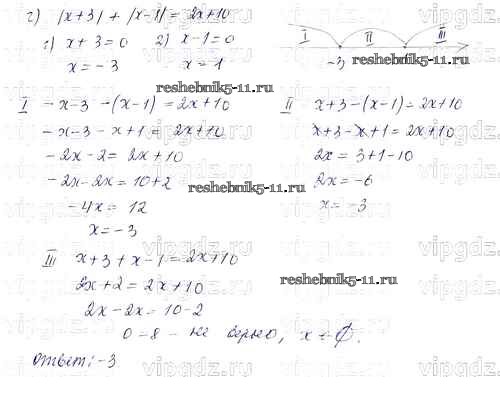 г) |x+3| + |x-1| = 2x+10
1) x+3=0 2) x-1=0
x=-3 x=1
I II III
-3
reshebnik5-11.ru
I -x-3 -(x-1) = 2x+10
-x-3-x+1 = 2x+10
-2x-2 = 2x+10
-2x-2x = 10+2
-4x = 12
x = -3
II x+3-(x-1) = 2x+10
x+3-x+1 = 2x+10
2x = 3+1-10
2x = -6
x = -3
reshebnik5-11.ru
III x+3+x-1 = 2x+10
2x+2 = 2x+10
2x-2x = 10-2
0=8 - не верно, x = ∅.
reshebnik5-11.ru
Ответ: -3
vipgdz.ru